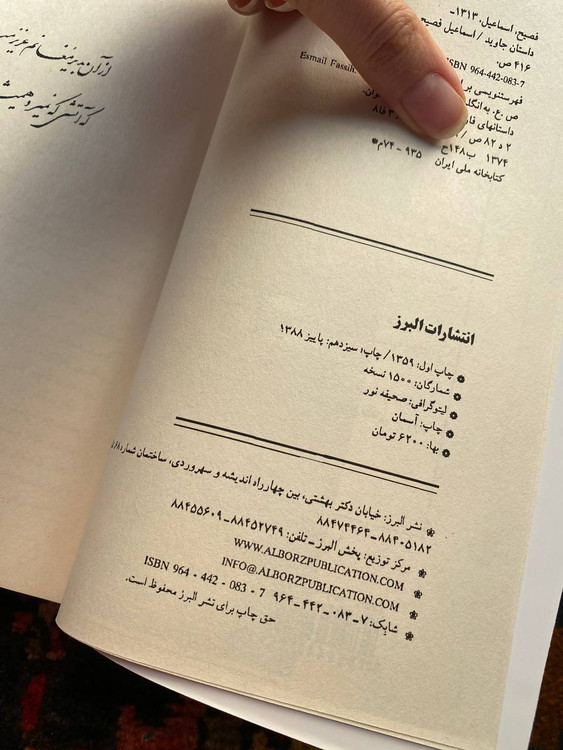 فصیح، اسماعیل، ۱۳۱۳ـ
داستان جاوید / اسماعیل فصیح
۴۱۶ ص.
ISBN 964-442-083-7
Esmail Fassih.
فهرستنویسی بر
ص. ع. به
داستانهای
۱۳۷۴
کتابخانه ملی ایران ۹۳۵ - ۷۴م*
انتشارات البرز
چاپ اول: ۱۳۵۹/ چاپ سیزدهم: پاییز ۱۳۸۸
شمارگان: ۱۵۰۰ نسخه
لیتوگرافی: صحیفه نور
چاپ: آسمان
بها: ۶۲۰۰ تومان
نشر البرز: خیابان دکتر بهشتی، بین چهارراه اندیشه و سهروردی، ساختمان شماره
۸۸۴۰۵۱۸۲ـ۸۸۴۷۴۴۶۴
مرکز توزیع: پخش البرز ـ تلفن: ۸۸۴۵۲۷۴۹ـ۸۸۴۵۵۶۰۹
WWW.ALBORZPUBLICATION.COM
INFO@ALBORZPUBLICATION.COM
شابک: ۷ـ۰۸۳ـ۴۴۲ـ۹۶۴ ISBN 964 - 442 - 083 - 7
حق چاپ برای نشر البرز محفوظ است.